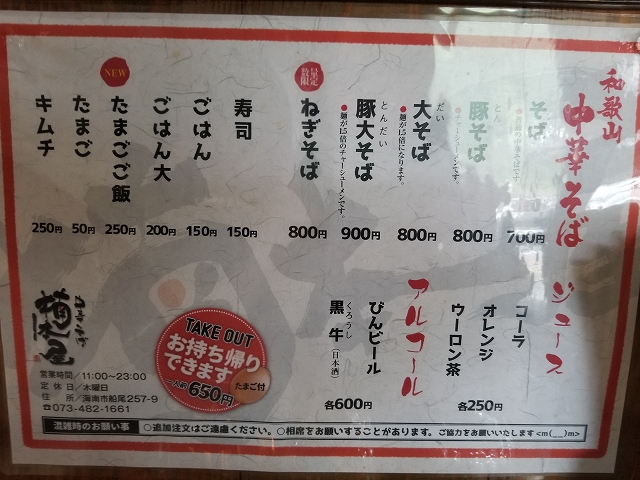 和歌山
中華そば
そば
700円
とん
豚そば
●チャーシューメンです。
800円
だい
大そば
●麺が1.5倍になります。
800円
とんだい
豚大そば
●麺が1.5倍のチャーシューメンです。
900円
数量限定
ねぎそば
800円
寿司
150円
ごはん
150円
ごはん大
200円
NEW
たまごご飯
250円
たまご
50円
キムチ
250円
ジュース
コーラ
オレンジ
ウーロン茶
各250円
アルコール
びんビール
くろうし
黒牛(日本酒)
各600円
TAKE OUT
お持ち帰り
できます
一人前650円
たまご付
営業時間／11:00～23:00
定休日／木曜日
住所／海南市船尾257-9
☎073-482-1661
混雑時のお願い事 ○追加注文はご遠慮ください。○相席をお願いすることがあります。ご協力をお願いいたします<m(__)m>